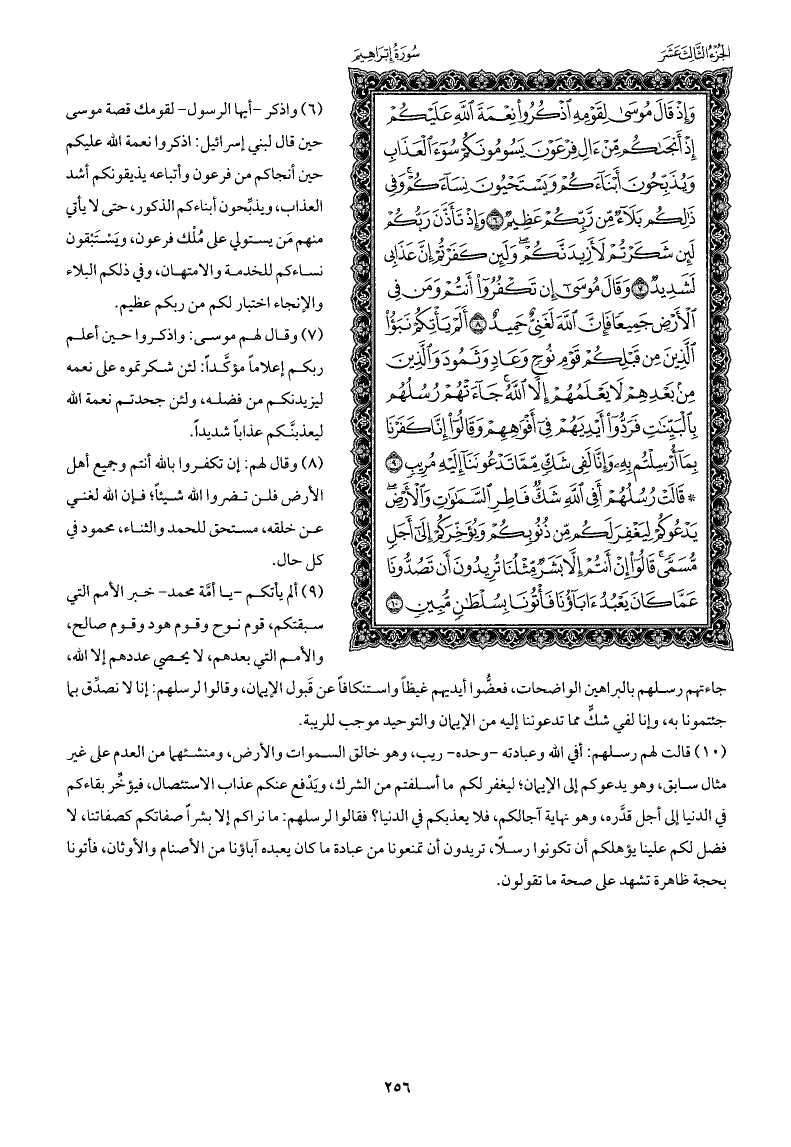 الجزء الثالث عشر
سورة إبراهيم
وَإِذْ قَالَ مُوسَىٰ لِقَوْمِهِ ٱذْكُرُوا۟ نِعْمَةَ ٱللَّهِ عَلَيْكُمْ
إِذْ أَنجَىٰكُم مِّنْ ءَالِ فِرْعَوْنَ يَسُومُونَكُمْ سُوٓءَ ٱلْعَذَابِ
وَيُذَبِّحُونَ أَبْنَآءَكُمْ وَيَسْتَحْيُونَ نِسَآءَكُمْ ۚ وَفِى
ذَٰلِكُم بَلَآءٌ مِّن رَّبِّكُمْ عَظِيمٌ ٦ وَإِذْ تَأَذَّنَ رَبُّكُمْ
لَئِن شَكَرْتُمْ لَأَزِيدَنَّكُمْ ۖ وَلَئِن كَفَرْتُمْ إِنَّ عَذَابِى
لَشَدِيدٌ ٧ وَقَالَ مُوسَىٰٓ إِن تَكْفُرُوٓا۟ أَنتُمْ وَمَن فِى
ٱلْأَرْضِ جَمِيعًا فَإِنَّ ٱللَّهَ لَغَنِىٌّ حَمِيدٌ ٨ أَلَمْ يَأْتِكُمْ نَبَؤُا۟
ٱلَّذِينَ مِن قَبْلِكُمْ قَوْمِ نُوحٍ وَعَادٍ وَثَمُودَ وَٱلَّذِينَ
مِنۢ بَعْدِهِمْ لَا يَعْلَمُهُمْ إِلَّا ٱللَّهُ ۚ جَآءَتْهُمْ رُسُلُهُم
بِٱلْبَيِّنَٰتِ فَرَدُّوٓا۟ أَيْدِيَهُمْ فِىٓ أَفْوَٰهِهِمْ وَقَالُوٓا۟ إِنَّا كَفَرْنَا
بِمَآ أُرْسِلْتُم بِهِۦ وَإِنَّا لَفِى شَكٍّ مِّمَّا تَدْعُونَنَآ إِلَيْهِ مُرِيبٍ ٩
* قَالَتْ رُسُلُهُمْ أَفِى ٱللَّهِ شَكٌّ فَاطِرِ ٱلسَّمَٰوَٰتِ وَٱلْأَرْضِ ۖ
يَدْعُوكُمْ لِيَغْفِرَ لَكُم مِّن ذُنُوبِكُمْ وَيُؤَخِّرَكُمْ إِلَىٰٓ أَجَلٍ
مُّسَمًّى ۚ قَالُوٓا۟ إِنْ أَنتُمْ إِلَّا بَشَرٌ مِّثْلُنَا تُرِيدُونَ أَن تَصُدُّونَا
عَمَّا كَانَ يَعْبُدُ ءَابَآؤُنَا فَأْتُونَا بِسُلْطَٰنٍ مُّبِينٍ ١٠
(٦) واذكر -أيها الرسول- لقومك قصة موسى
حين قال لبني إسرائيل: اذكروا نعمة الله عليكم
حين أنجاكم من فرعون وأتباعه يذيقونكم أشد
العذاب، ويذبِّحون أبناءكم الذكور، حتى لا يأتي
منهم مَن يستولي على مُلْك فرعون، ويَسْتَبْقون
نساءكم للخدمة والامتهان، وفي ذلكم البلاء
والإنجاء اختبار لكم من ربكم عظيم.
(٧) وقال لهم موسى: واذكروا حين أعلم
ربكم إعلاماً مؤكَّداً: لئن شكرتموه على نعمه
ليزيدنكم من فضله، ولئن جحدتم نعمة الله
ليعذبنَّكم عذاباً شديداً.
(٨) وقال لهم: إن تكفروا بالله أنتم وجميع أهل
الأرض فلن تضروا الله شيئاً؛ فإن الله لغني
عن خلقه، مستحق للحمد والثناء، محمود في
كل حال.
(٩) ألم يأتكم -يا أمَّة محمد- خبر الأمم التي
سبقتكم، قوم نوح وقوم هود وقوم صالح،
والأمم التي بعدهم، لا يحصي عددهم إلا الله،
جاءتهم رسلهم بالبراهين الواضحات، فعضُّوا أيديهم غيظاً واستنكافاً عن قَبول الإيمان، وقالوا لرسلهم: إنا لا نصدِّق بما
جئتمونا به، وإنا لفي شكٍّ مما تدعوننا إليه من الإيمان والتوحيد موجب للريبة.
(١٠) قالت لهم رسلهم: أفي الله وعبادته -وحده- ريب، وهو خالق السموات والأرض، ومنشئهما من العدم على غير
مثال سابق، وهو يدعوكم إلى الإيمان؛ ليغفر لكم ما أسلفتم من الشرك، ويَدْفع عنكم عذاب الاستئصال، فيؤخِّر بقاءكم
في الدنيا إلى أجل قدَّره، وهو نهاية آجالكم، فلا يعذبكم في الدنيا؟ فقالوا لرسلهم: ما نراكم إلا بشراً صفاتكم كصفاتنا، لا
فضل لكم علينا يؤهلكم أن تكونوا رسلاً، تريدون أن تمنعونا من عبادة ما كان يعبده آباؤنا من الأصنام والأوثان، فأتونا
بحجة ظاهرة تشهد على صحة ما تقولون.
٢٥٦